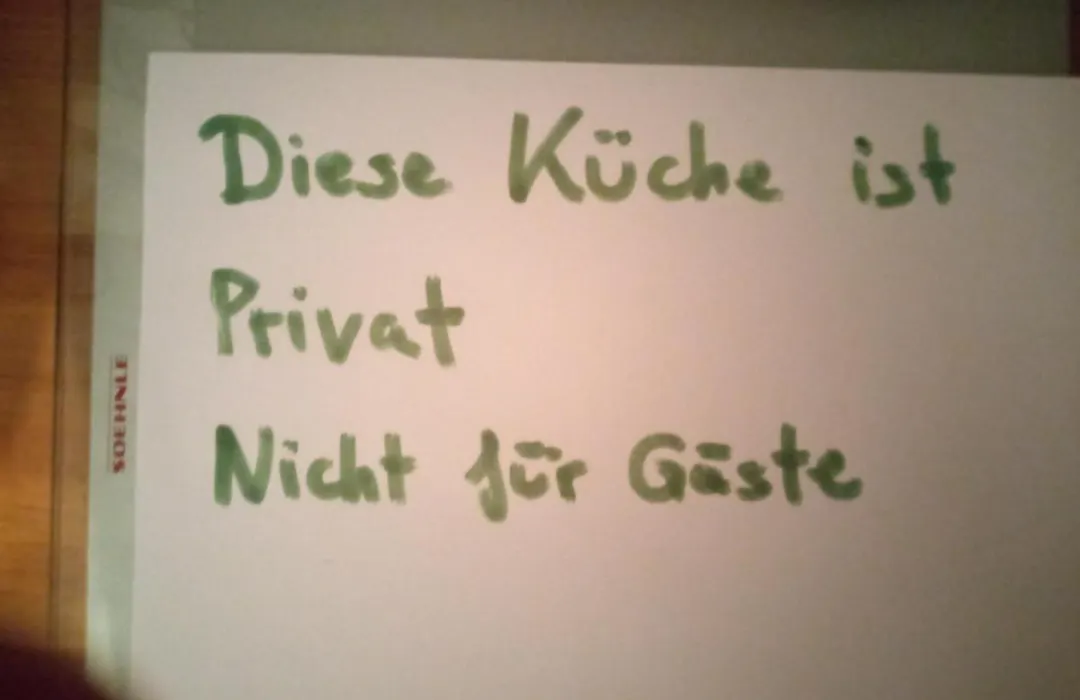 Diese Küche ist
Privat
Nicht für Gäste
SOEHNLE